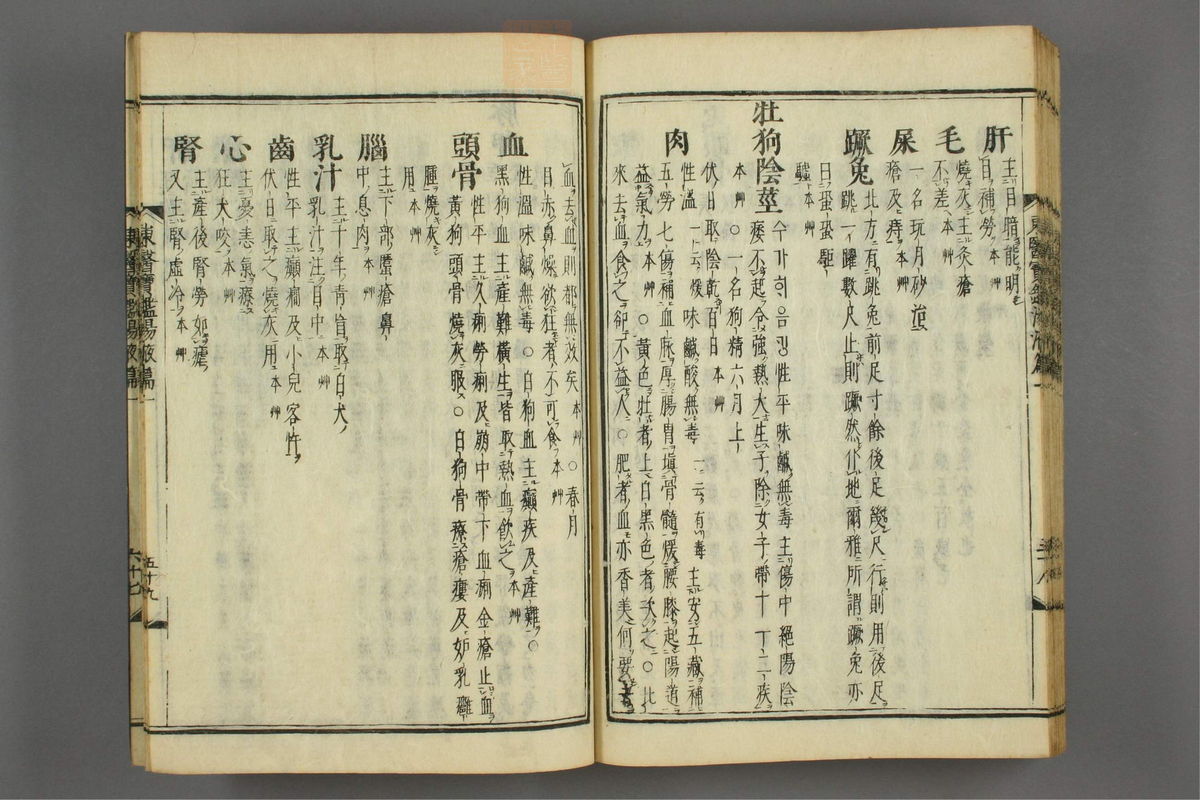 肝
主目暗能明
目補勞本艸
毛
燒灰主灸瘡
不差本艸
屎
一名玩月砂治
瘡及痔本艸
蹶兔
北方有跳兔前足寸餘後足幾尺行則用後足
跳一躍數尺止則蹶然仆地爾雅所謂蹶兔亦
曰蛩蛩駏
驉本艸
牡狗陰莖
수가희음경性平味鹹無毒主傷中絕陽陰
痿不起令強熱大生子除女子帶下十二疾
本艸○一名狗精六月上
伏日取陰乾百日本艸
肉
性溫一云煖味鹹酸無毒一云有毒主安五藏補
五勞七傷補血脉厚腸胃塡骨髓煖腰膝起陽道
益氣力本艸○黃色牡者上白黑色者次之○比
來去血食之卻不益人○肥者血亦香美何要
去血去血則都無效矣本艸○春月
目赤鼻燥欲狂者不可食本艸
血
性溫味鹹無毒○白狗血主癲疾及產難○
黑狗血主產難橫生皆取熱血飲之本艸
頭骨
性平主久痢勞痢及崩中帶下血痢金瘡止血
黃狗頭骨燒灰服○白狗骨療瘡瘻及妒乳癰
腫燒灰
用本艸
腦
主下部䘌瘡鼻
中息肉本艸
乳汁
主十年靑盲取白犬
乳汁注目中本艸
齒
性平主癲癎及小兒客忤
伏日取之燒灰用本艸
心
主憂恚氣療
狂犬咬本艸
腎
主產後腎勞如瘧
又主腎虛冷本艸
東醫寶鑑湯液篇一
五十九
六十七